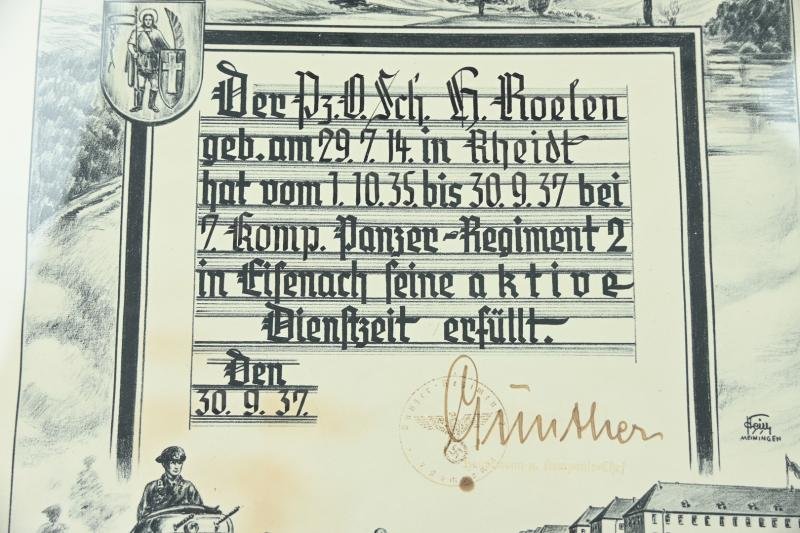 Der Pz.O.Sch. H. Roelen
geb. am 29.7.14. in Rheidt
hat vom 1.10.35. bis 30.9.37 bei
7. Komp. Panzer-Regiment 2
in Eisenach seine aktive
Dienstzeit erfüllt.
Den
30. 9. 37.
Günther
Hauptmann u. Kompanie-Chef
MEININGEN